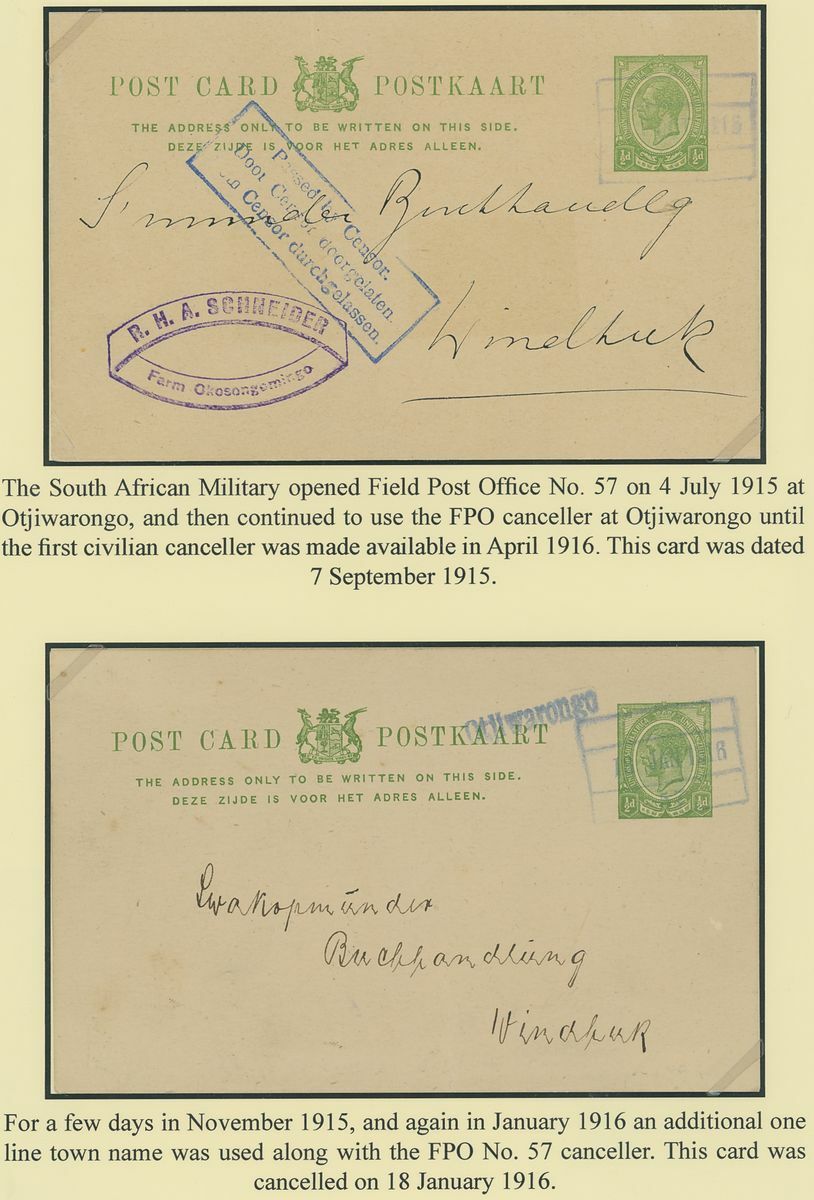 POST CARD POSTKAART
THE ADDRESS ONLY TO BE WRITTEN ON THIS SIDE.
DEZE ZIJDE IS VOOR HET ADRES ALLEEN.
½d ½d
Passed by Censor.
Door Censor doorgelaten.
Censor durchgelassen.
S'munder Buchhandlg
Windhuk
R. H. A. SCHNEIDER
Farm Okosongemingo
The South African Military opened Field Post Office No. 57 on 4 July 1915 at
Otjiwarongo, and then continued to use the FPO canceller at Otjiwarongo until
the first civilian canceller was made available in April 1916. This card was dated
7 September 1915.
Otjiwarongo
POST CARD POSTKAART
THE ADDRESS ONLY TO BE WRITTEN ON THIS SIDE.
DEZE ZIJDE IS VOOR HET ADRES ALLEEN.
½d ½d
Swakopmünder
Buchhandlung
Windhuk
For a few days in November 1915, and again in January 1916 an additional one
line town name was used along with the FPO No. 57 canceller. This card was
cancelled on 18 January 1916.